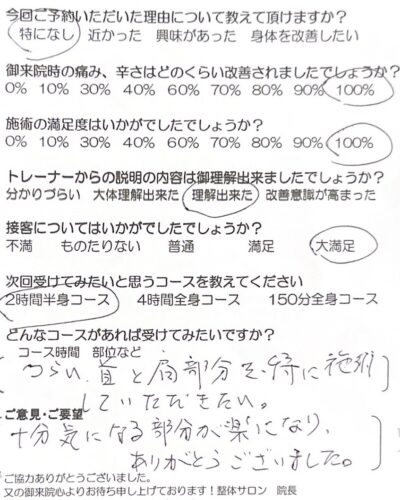 今回ご予約いただいた理由について教えて頂けますか?
特になし 近かった 興味があった 身体を改善したい
御来院時の痛み、辛さはどのくらい改善されましたでしょうか?
0% 10% 30% 40% 60% 70% 80% 90% 100%
施術の満足度はいかがでしたでしょうか?
0% 10% 30% 40% 60% 70% 80% 90% 100%
トレーナーからの説明の内容は御理解出来ましたでしょうか?
分かりづらい 大体理解出来た 理解出来た 改善意識が高まった
接客についてはいかがでしたでしょうか?
不満 ものたりない 普通 満足 大満足
次回受けてみたいと思うコースを教えてください
2時間半身コース 4時間全身コース 150分全身コース
どんなコースがあれば受けてみたいですか?
コース時間 部位など
つらい、首と肩部分を特に施術
していただきたい。
ご意見・ご要望
十分気になる部分が楽になり、
ありがとうございました。
ご協力ありがとうございました。
又の御来院心よりお待ち申し上げております!整体サロン 院長